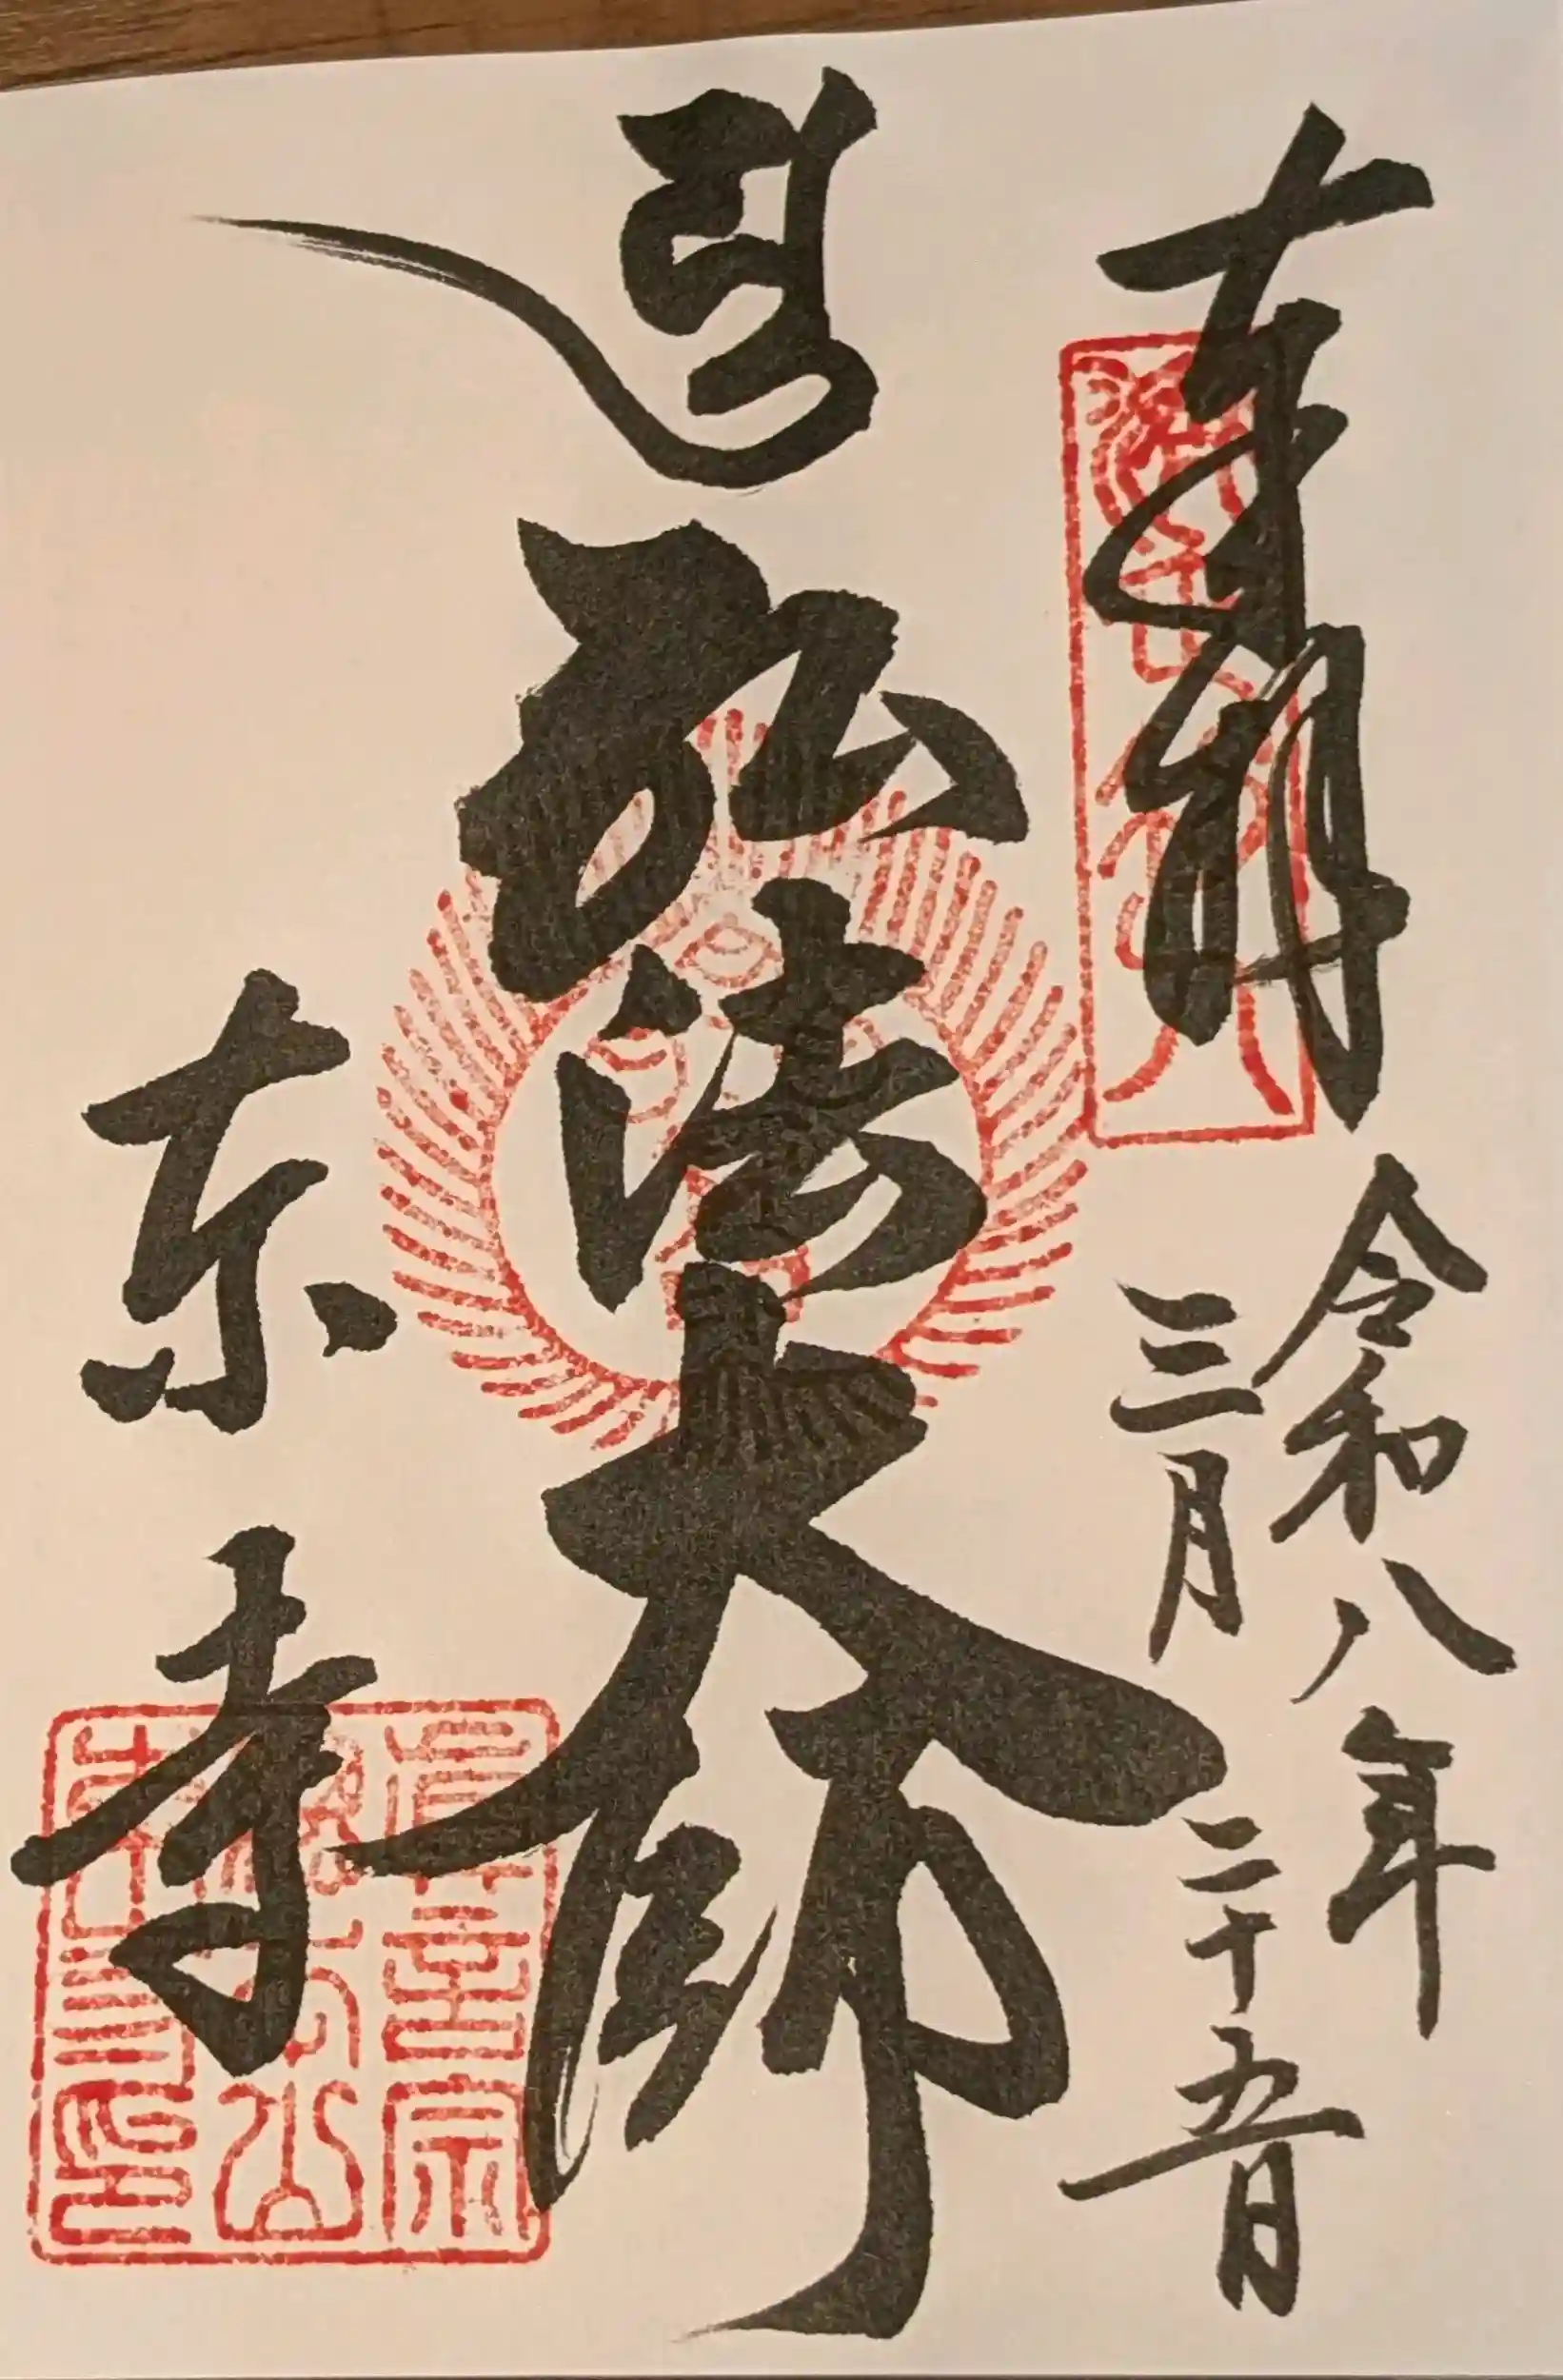 奉拝
令和八年
三月二十五日
弘法大師
東寺
真言宗
総本山
東寺印